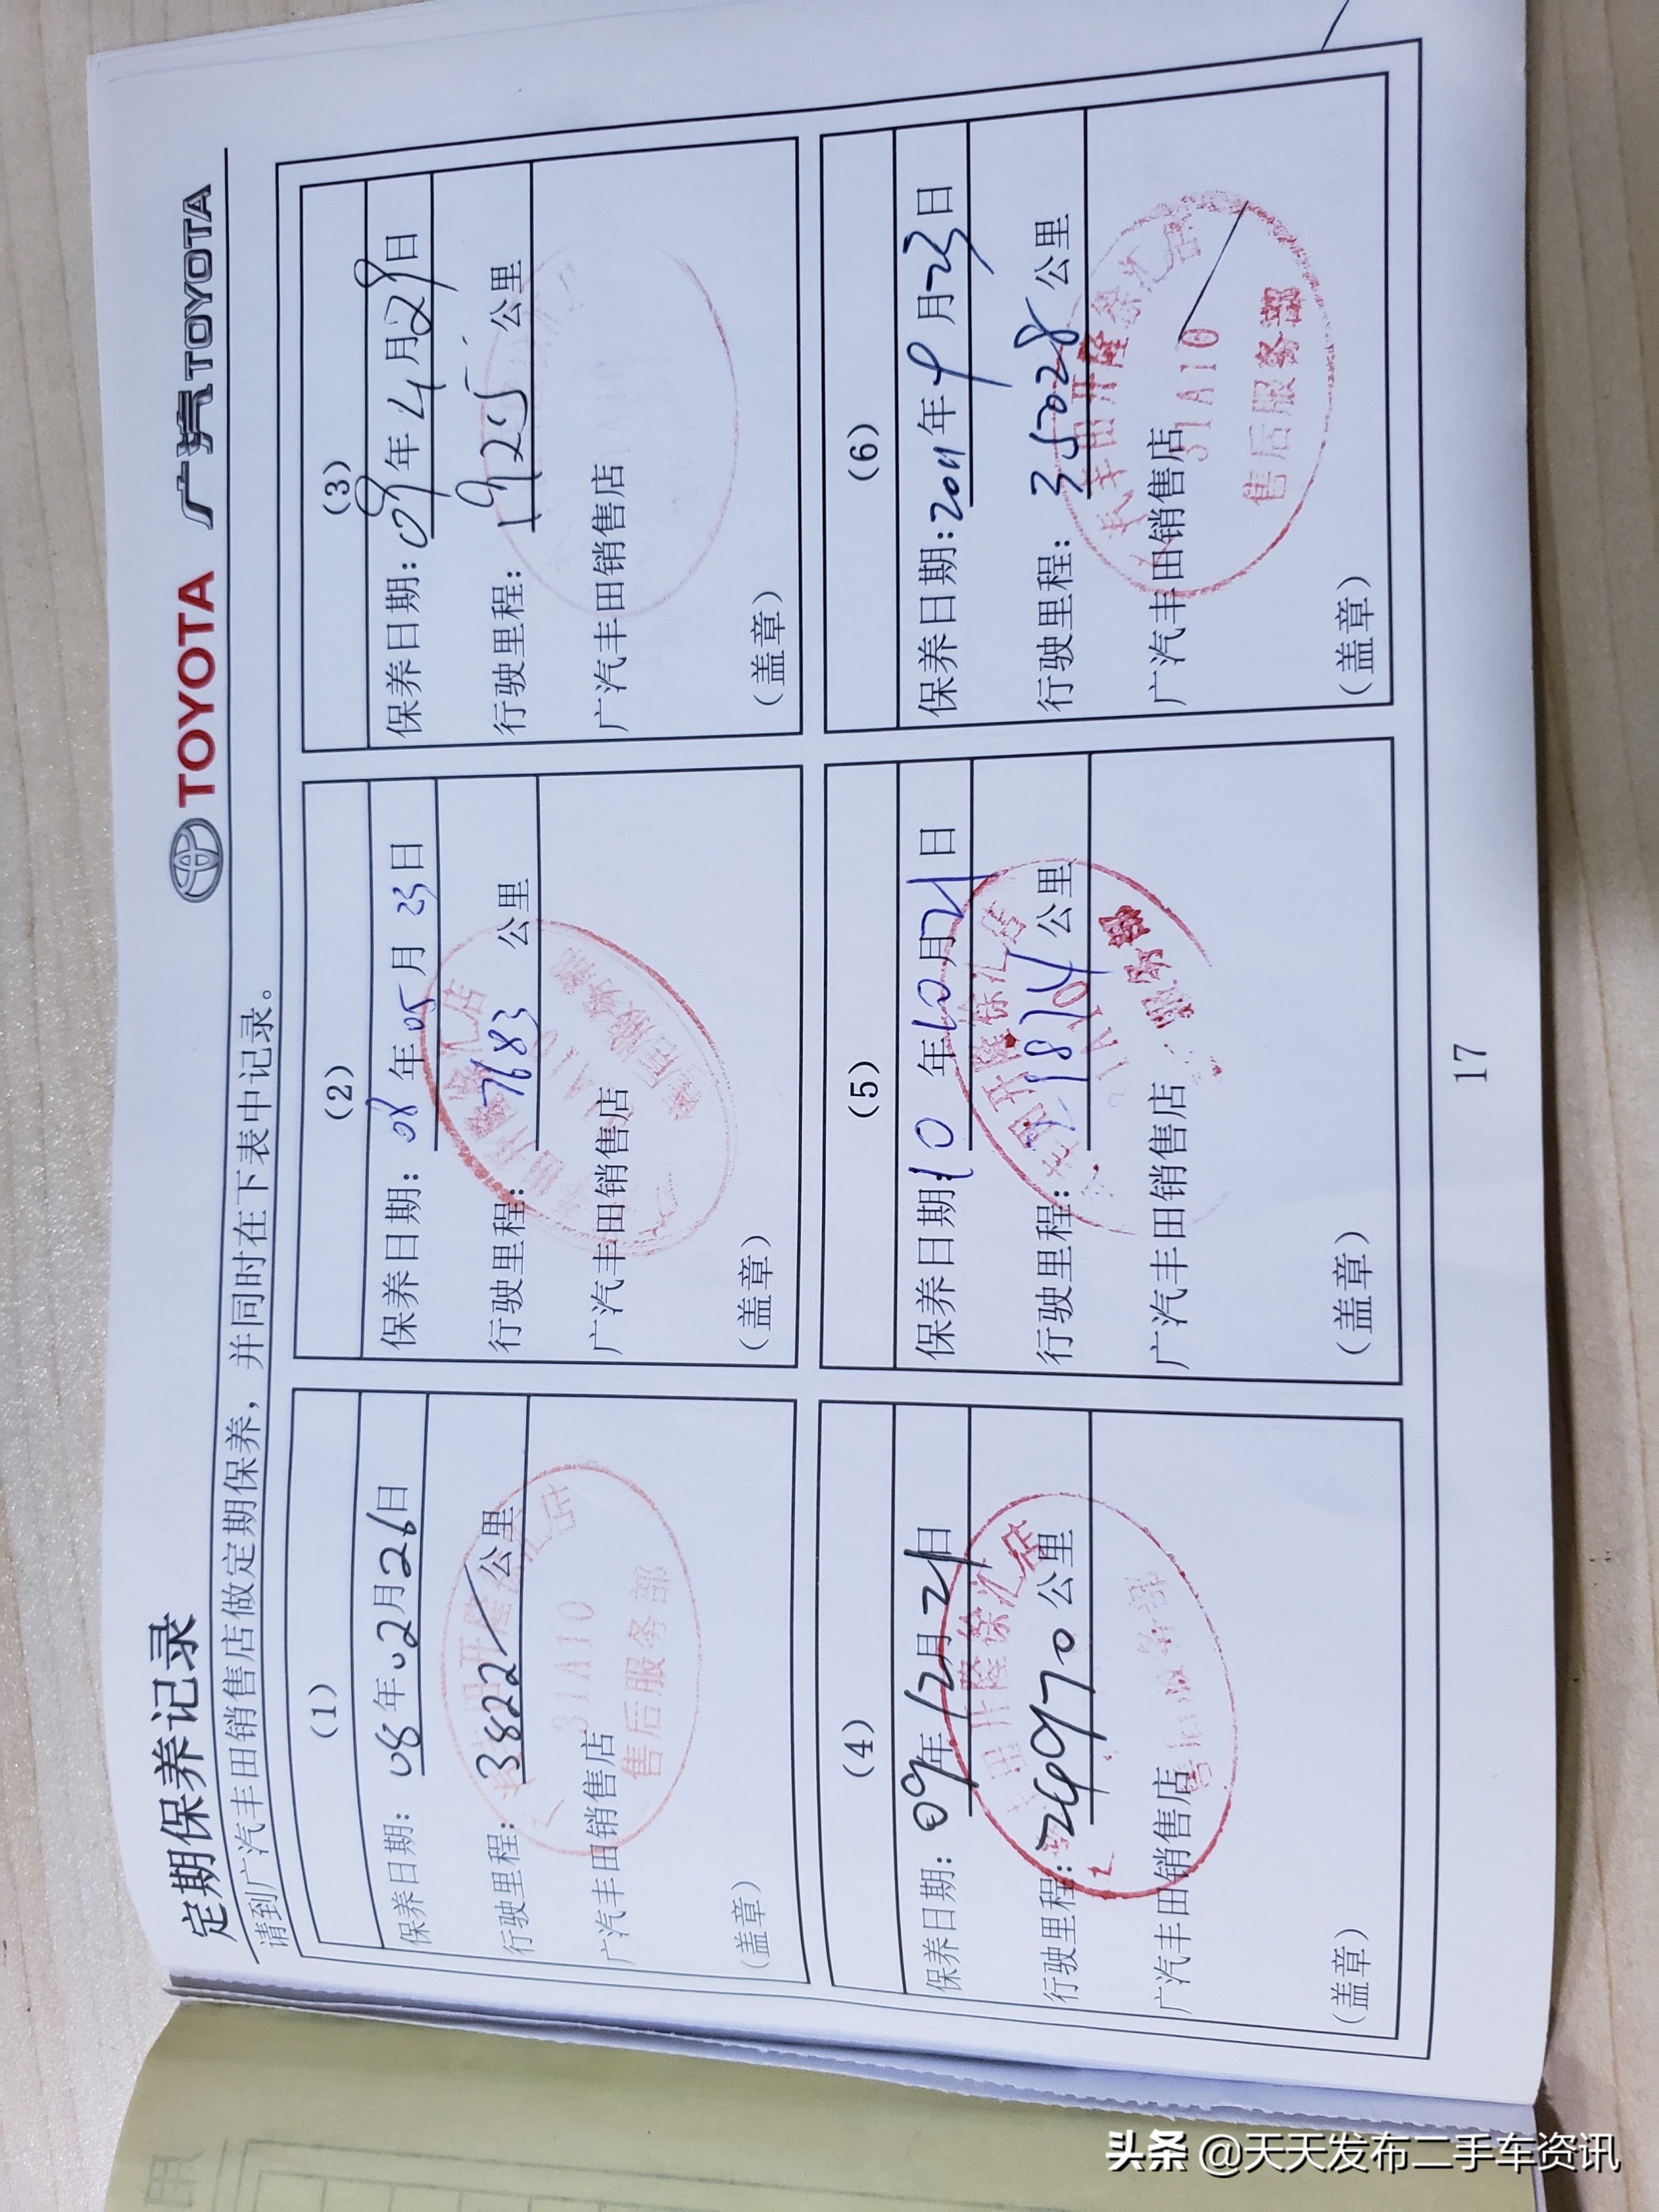 定期保养记录
TOYOTA 广汽TOYOTA
请到广汽丰田销售店做定期保养，并同时在下表中记录。
(1)
保养日期：08年02月26日
行驶里程：3822公里
广汽丰田销售店
31A10
售后服务部
(盖章)
(2)
保养日期：08年05月23日
行驶里程：7683公里
广汽丰田销售店
售后服务部
(盖章)
(3)
保养日期：09年4月29日
行驶里程：19255公里
广汽丰田销售店
(盖章)
(4)
保养日期：09年12月21日
行驶里程：公里
广汽丰田销售店
田开隆徐汇店
(盖章)
(5)
保养日期：10年10月21日
行驶里程：公里
广汽丰田销售店
(盖章)
(6)
保养日期：2011年9月23日
行驶里程：35028公里
广汽丰田销售店
丰田开隆徐汇店
31A10
售后服务部
(盖章)
17
头条 @天天发布二手车资讯